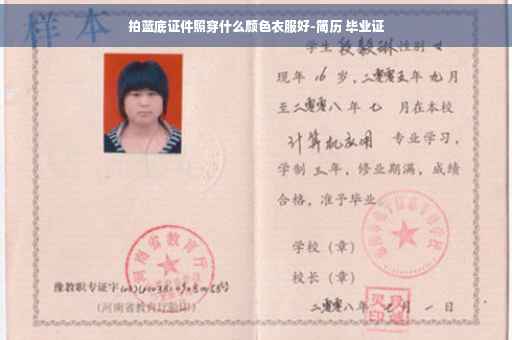 拍蓝底证件照穿什么颜色衣服好-简历 毕业证
样本
学生 段毅琳 性别 女
现年 16 岁，二零零五年 九 月
至二零零八年 七 月在本校
计算机应用 专业学习，
学制 三 年，修业期满，成绩
合格，准予毕业。
学校（章）
校长（章）
二零零八年 七 月 一 日
河南省教育厅
豫教职专证字
（河南省教育厅验印）